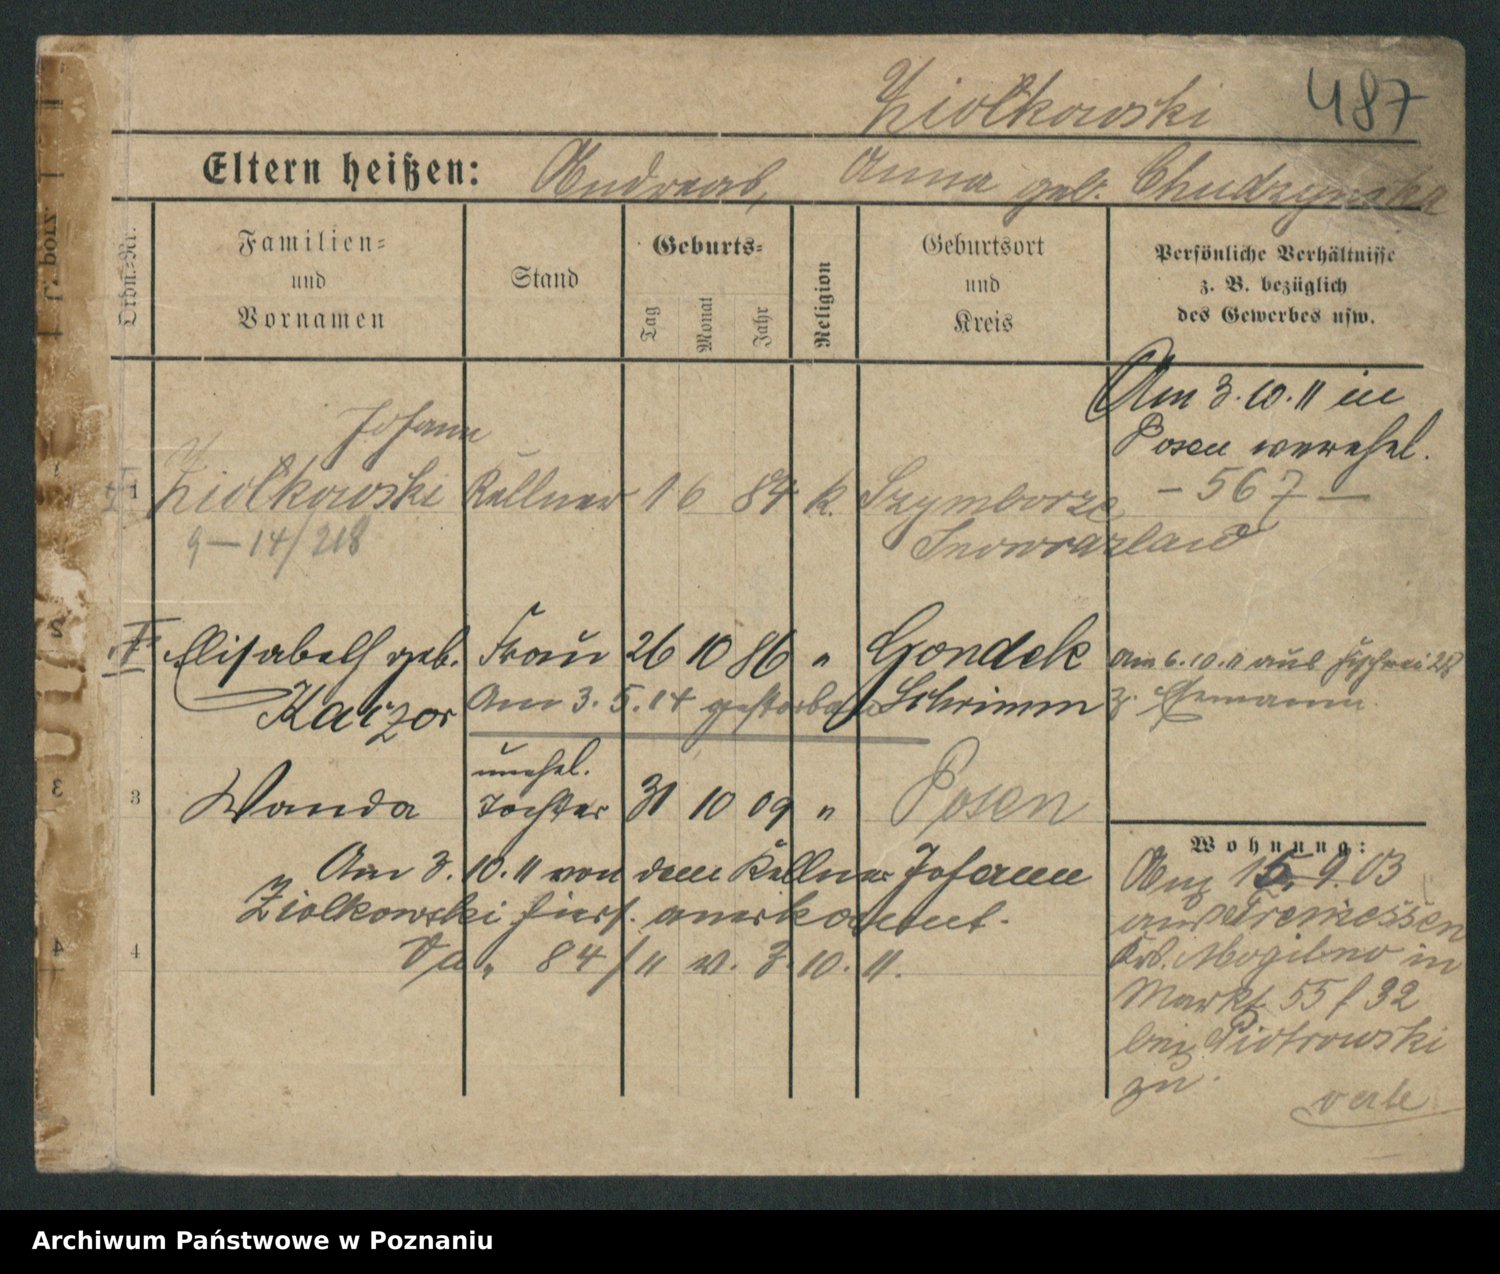 Ziołkowski 487
Eltern heißen: Andreas, Anna geb. Chudzynska
Ordn.-Nr.
Familien-
und
Vornamen
Stand
Geburts-
Tag
Monat
Jahr
Religion
Geburtsort
und
Kreis
Persönliche Verhältnisse
z. B. bezüglich
des Gewerbes usw.
Am 3.10.11 in
Posen verehel.
– 567 –
Johann
1 Ziołkowski Kellner 1 6 84 k. Szymborze
9–14/218 Inowrazlaw
II Elisabeth geb. Frau 26 10 86 " Gondek
Karzor Am 3.5.14 gestorben Schrimm
Am 6.10.11 aus
z.
unehel.
3 Wanda Tochter 31 10 09 " Posen
Am 3.10.11 von dem Kellner Johann
Ziolkowski hiers. anerkannt.
4 84/11 v. 3.10.11.
Wohnung:
15.9.03
aus Tremessen
Krs. Mogilno in
Markt 55 f 32
bei Piotrowski
zu.
verte
3
4
Archiwum Państwowe w Poznaniu